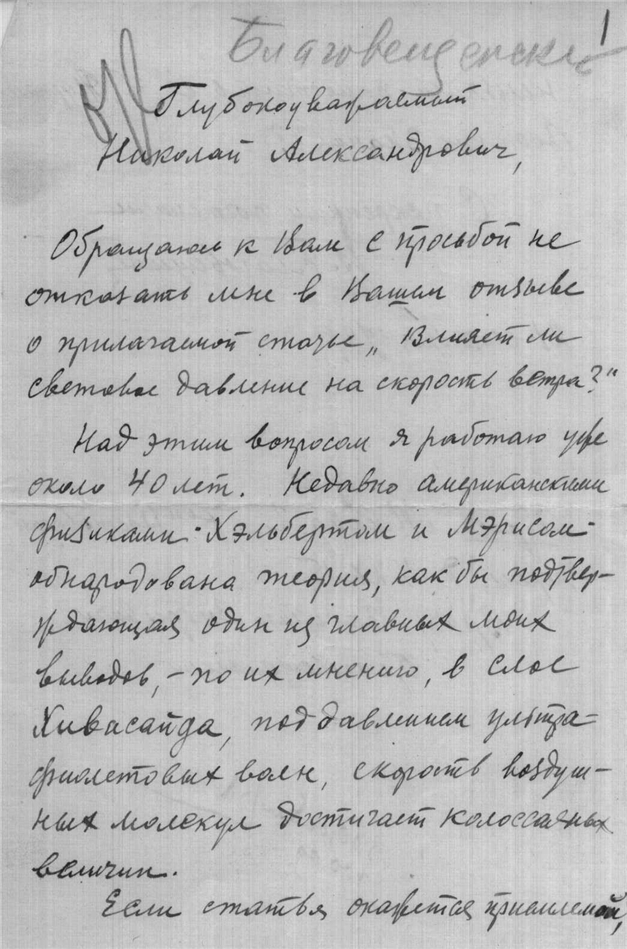 1
Благовещенский
Глубокоуважаемый
Николай Александрович,
Обращаюсь к Вам с просьбой не
отказать мне в Вашем отзыве
о прилагаемой статье „Влияет ли
световое давление на скорость ветра?"
Над этим вопросом я работаю уже
около 40 лет. Недавно американскими
физиками - Хэльбертом и Мэрисом -
обнародована теория, как бы подтвер-
ждающая один из главных моих
выводов, - по их мнению, в слое
Хивисайда, под давлением ультра-
фиолетовых волн, скорость воздуш-
ных молекул достигает колоссальных
величин.
Если статья окажется приемлемой,